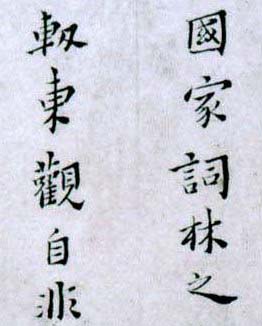 國家詞林之
軔東觀自非